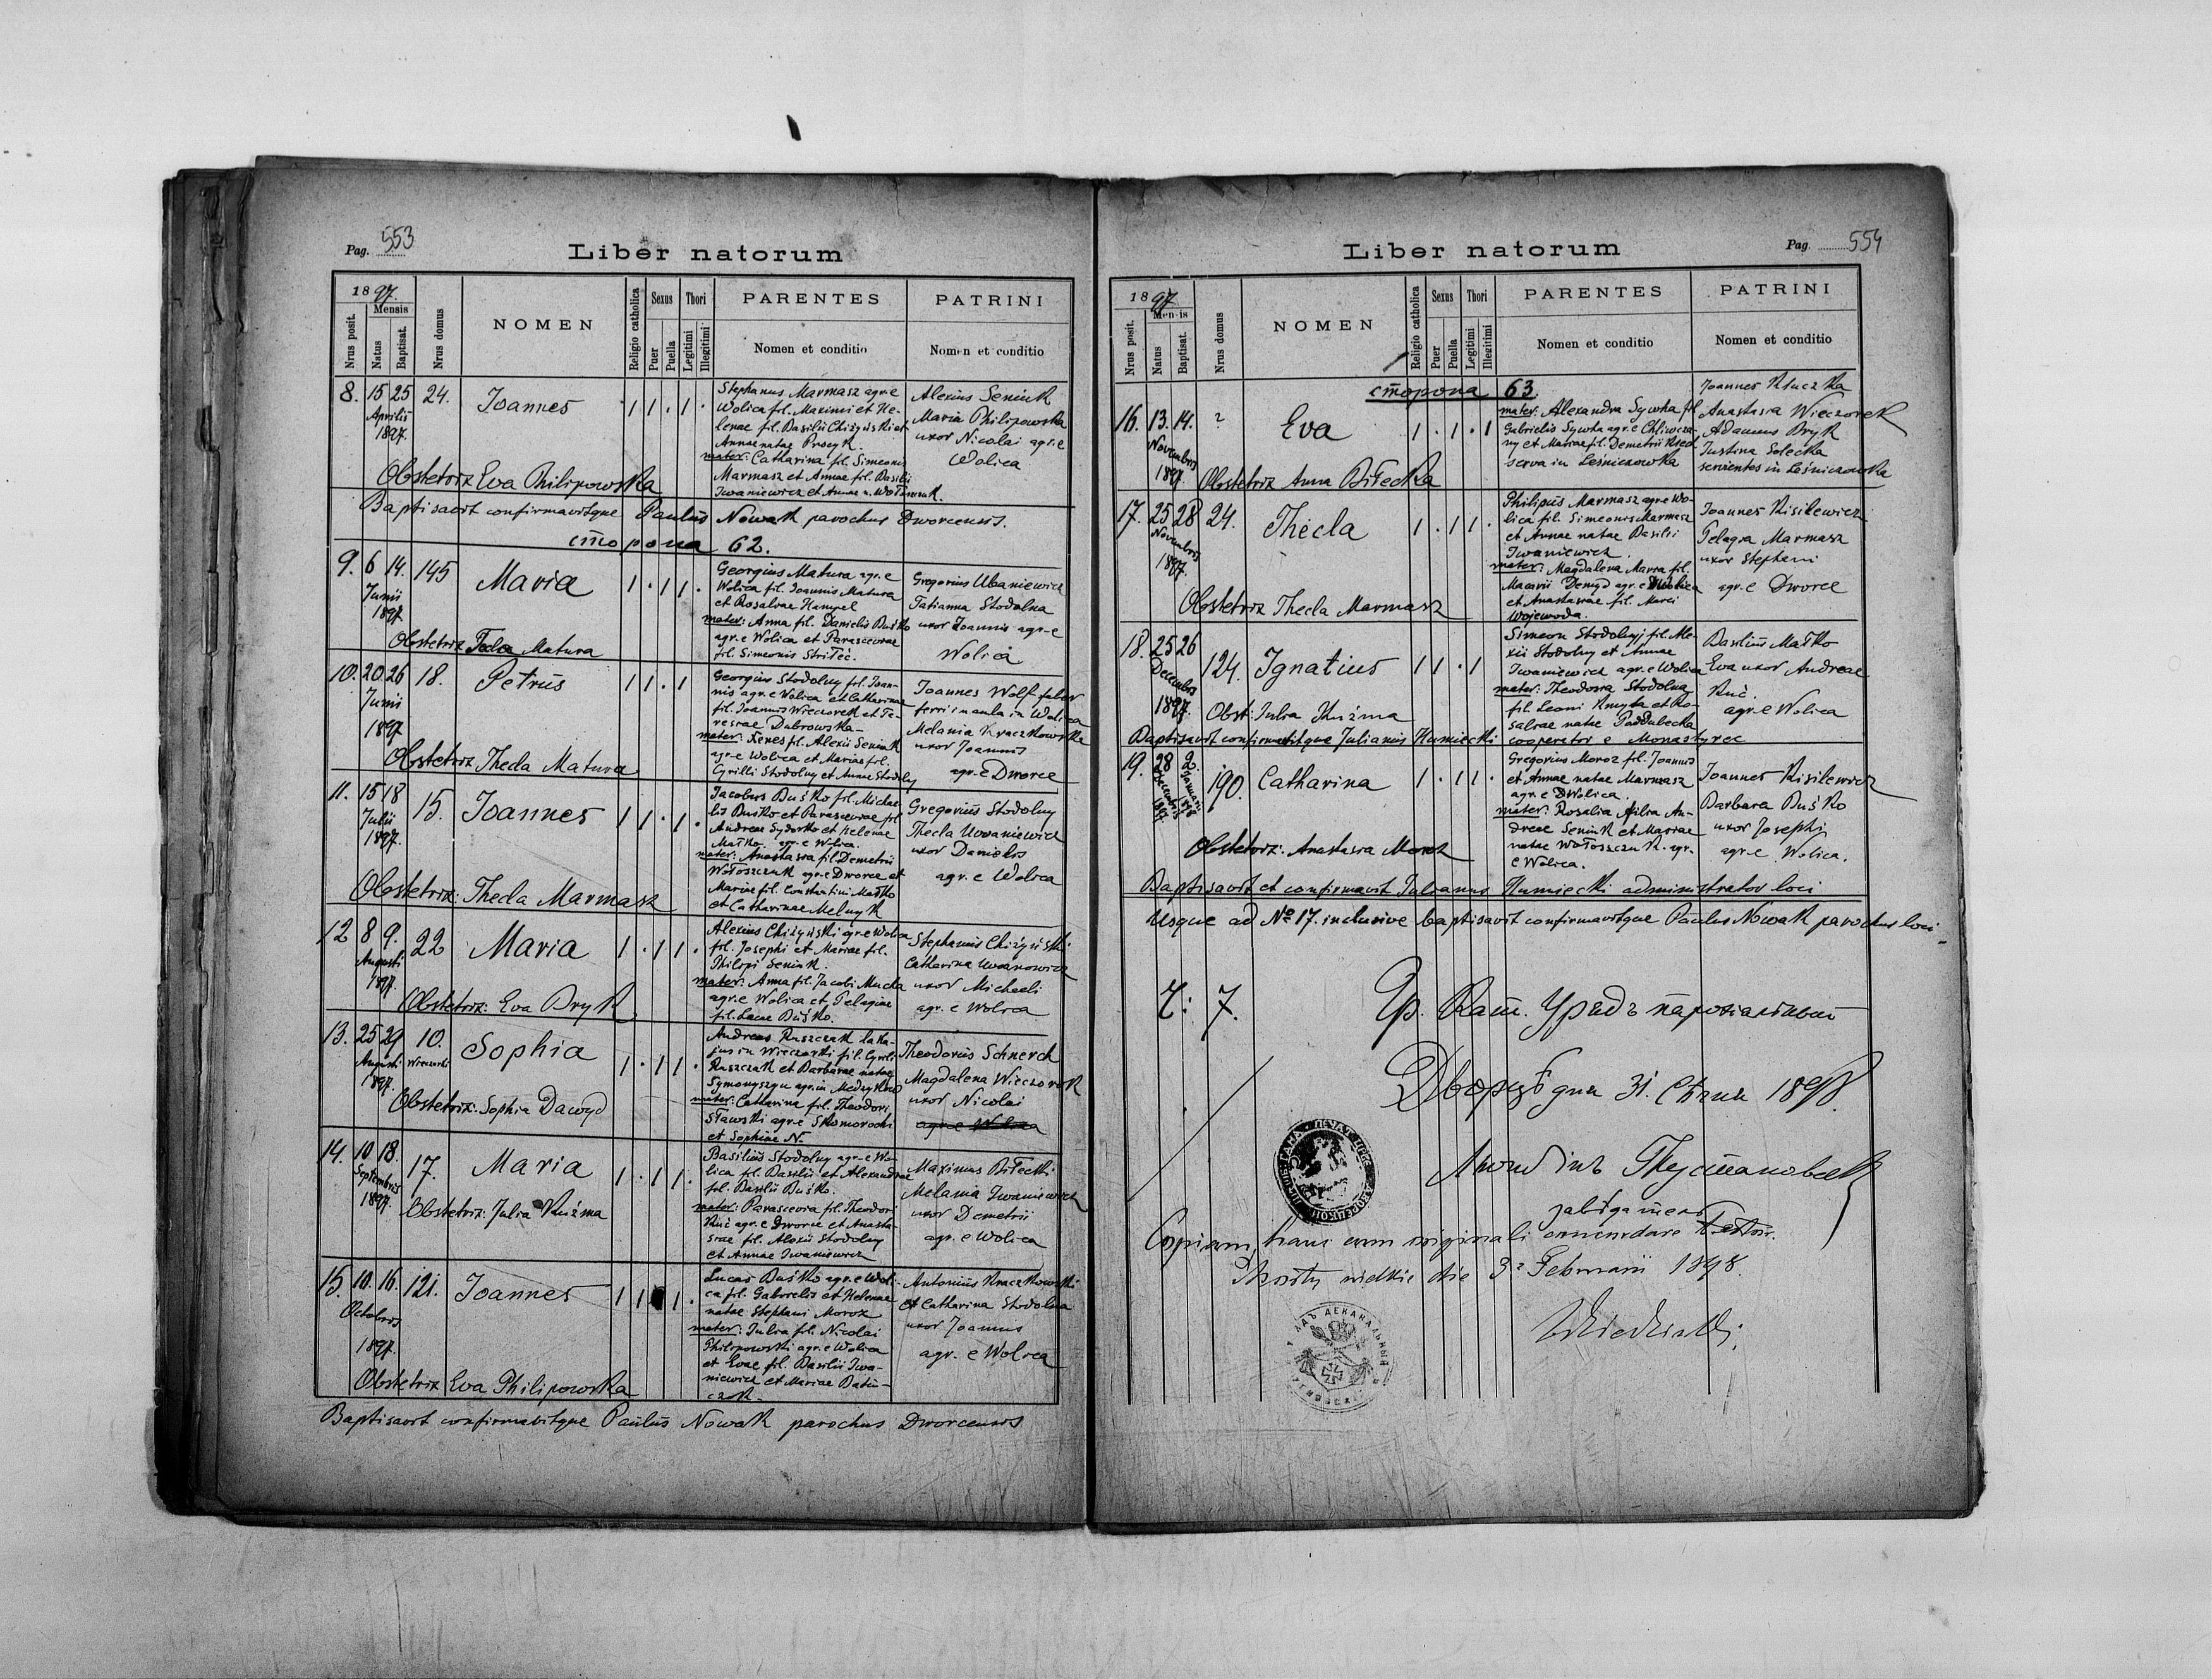 Pag. 553
Liber natorum
1897.
Mensis
Nrus posit.
Natus
Baptisat.
Nrus domus
NOMEN
Religio catholica
Sexus
Puer
Puella
Thori
Legitimi
Illegitimi
PARENTES
Nomen et conditio
PATRINI
Nomen et conditio
8. 15 25 24. Joannes 1 1 . 1 .
Aprilis
1897.
Stephanus Marmasz agr. e
Wolica fil. Maximi et He-
lenae fil. Basilii Chiżyński et
Annae natae Procyk
mater: Catharina fil. Simeonis
Marmasz et Annae fil. Basilii
Iwaniewicz et Annae n. Wołoszczuk.
Alexius Seniuk
Maria Philipowska
uxor Nicolai agr. e
Wolica
Obstetrix Eva Philipowska
Baptisavit confirmavitque Paulus Nowak parochus Dworcensis.
сторона 62.
9. 6 14. 145 Maria 1 . 1 1 .
Junii
1897
Georgius Matura agr. e
Wolica fil. Joannis Matura
et Rosaliae Hampel
mater: Anna fil. Danielis Buśko
agr. e Wolica et Parascevae
fil. Simeonis Strileć.
Gregorius Ubaniewicz
Tatianna Stodolna
uxor Joannis agr. e
Wolica
Obstetrix Matura
10. 20 26 18. Petrus 1 1 . 1
Junii
1897
Georgius Stodolny fil. Joan-
nis agr. e Wolica et Catharinae
fil. Joannis Wieczorek et Te-
resiae Dubrowska
mater: Xenes fil. Alexii Seniuk
agr. e Wolica et Mariae fil.
Cyrilli Stodolny et Annae Stodolny
Joannes Wolf faber
ferri in aula in Wolica
Melania Kraczkowska
uxor Joannis
agr. e Dworce
Obstetrix Thecla Matura
11. 15 18 15. Joannes 1 1 . 1 .
Julii
1897.
Jacobus Buśko fil. Michae-
lis Buśko et Parascevae fil.
Andreae Sydorko et Helenae
Małko agr. e Wolica.
mater: Anastasia fil. Demetrii
Wołoszczuk agr. e Dworce et
Mariae fil. Constantini Małko
et Catharinae Melnyk
Gregorius Stodolny
Thecla Uwaniewicz
uxor Danielis
agr. e Wolica
Obstetrix: Thecla Marmasz
12 8 9. 22 Maria 1 . 1 1 .
Augusti
1897.
Alexius Chiżyński agr. e Wolica
fil. Josephi et Mariae fil.
Philipi Seniuk.
mater: Anna fil. Jacobi Mucha
agr. e Wolica et Pelagiae
fil. Lucae Buśko.
Stephanus Chiżyński
Catharina Uwanowicz
uxor Michaeli
agr. e Wolica
Obstetrix: Eva Bryk
13. 25 29 10. Sophia 1 . 1 1 .
Augusti Wieczorki
1897.
Andreas Ruszczak laka-
jus in Wieczorki fil. Cyrili
Ruszczak et Barbarae natae
Symonyszyn agr. in
mater: Catharina fil. Theodori
Sławski agr. e Skomorochi
et Sophiae N.
Theodorius Schnerch
Magdalena Wieczorek
uxor Nicolai
agr. e Wolica
Obstetrix: Sophia Dawyd
14. 10 18. 17. Maria 1 . 1 1 .
Septembris
1897.
Basilius Stodolny agr. e Wo-
lica fil. Basilii et Alexandrae
fil. Basilii Buśko.
mater: Parascevia fil. Theodori
Kuć agr. e Dworce et Anasta-
siae fil. Alexii Stodolny
et Annae Iwaniewicz
Maximus Biłecki
Melania Iwaniewicz
uxor Demetrii
agr. e Wolica
Obstetrix: Julia Kuźma
15. 10. 16. 121. Joannes 1 1 1 .
Octobris
1897.
Lucas Buśko agr. e Woli-
ca fil. Gabrielis et Helenae
natae Stephani Moroz
mater: Julia fil. Nicolai
Philipowski agr. e Wolica
et Evae fil. Basilii Iwa-
niewicz et Mariae Batiu-
czok
Antonius Kraczkowski
et Catharina Stodolna
uxor Joannis
agr. e Wolica
Obstetrix Eva Philipowska
Baptisavit confirmavitque Paulus Nowak parochus Dworcensis
Liber natorum
Pag. 554
1897
Mensis
Nrus posit.
Natus
Baptisat.
Nrus domus
NOMEN
Religio catholica
Sexus
Puer
Puella
Thori
Legitimi
Illegitimi
PARENTES
Nomen et conditio
PATRINI
Nomen et conditio
сторона 63.
16. 13. 14. ? Eva 1 . 1 . 1
Novembris
1897.
mater: Alexandra Sywha fil.
Gabrielis Sywha agr. e Chliwcza-
ny et Mariae fil. Demetrii
serva in Leśniczowka
Joannes Kluczka
Anastasia Wieczorek
Adamus Bryk
Justina Solecka
servientes in Leśniczowka
Obstetrix Anna Biłecka
17. 25 28 24. Thecla 1 . 1 1 .
Novembris
1897.
Philipus Marmasz agr. e Wo-
lica fil. Simeonis Marmasz
et Annae natae Basilii
Iwaniewicz.
mater: Magdalena Maria fil.
Macarii Demyd agr. e Wolica
et Anastasiae fil. Marci
Wojewoda.
Joannes Kisilewicz
Pelagia Marmasz
uxor Stephani
agr. e Dworce
Obstetrix Thecla Marmasz
18. 25 26 124. Ignatius 1 1 . 1
Decembris
1897.
Simeon Stodolnyj fil. Ale-
xii Stodolny et Annae
Iwaniewicz agr. e Wolica
mater: Theodosia Stodolna
fil. Leoni Kmyta et Ro-
saliae natae Poddubecka
Basilius Małko
Eva uxor Andreae
Kuć.
agr. e Wolica
Obst: Julia Kuźma
Baptisavit confirmavitque Julianus Humiecki cooperator e Monastyrec
19. 28 2. 190. Catharina 1 . 1 1 .
Decembris 1897 Januarii 1898
Gregorius Moroz fil. Joannis
et Annae natae Marmasz
agr. e Wolica.
mater: Rosalia filia An-
dreae Seniuk et Mariae
natae Wołoszczuk agr.
e Wolica.
Joannes Kisilewicz
Barbara Buśko
uxor Josephi
agr. e Wolica.
Obstetrix: Anastasia Moroz
Baptisavit et confirmavit Julianus Humiecki administrator loci
Usque ad No 17. inclusive baptisavit confirmavitque Paulus Nowak parochus loci
Ч: 7. Гр. Кат. Урядъ парохіальный
Дворцѣ дня 31. Січня 1898.
Copiam hanc cum originali concordare testor.
Mosty wielkie die 3 Februarii 1898.